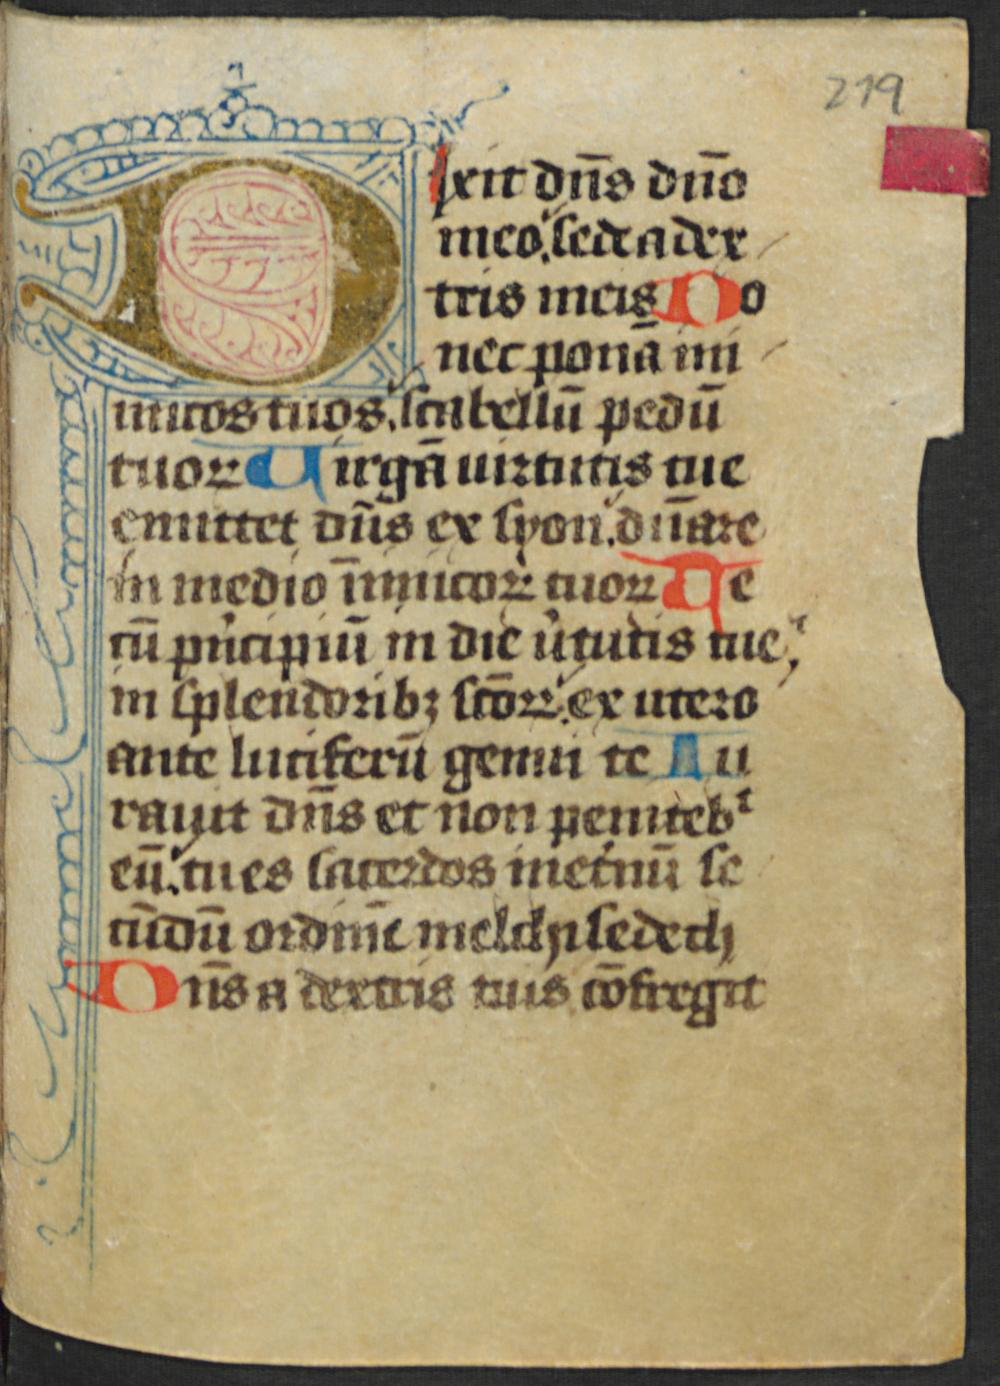 219
Dixit dn̄s dn̄o
meo. sede a dex
tris meis Do
nec ponā ini
micos tuos. scabellū pedū
tuoꝝ Uirgā uirtutis tue
emittet dn̄s ex syon. dn̄are
in medio īnimicoꝝ tuoꝝ Te
cū pͥncipiū in die uͥtutis tue
in splendoribꝫ sc̄oꝝ. ex utero
ante luciferū genui te Iu
rauit dn̄s et non penitebᵗ
eū. tu es sacerdos inet̓nū se
cūdū ordinē melchisedech
Dn̄s a dextris tuis cōfregit